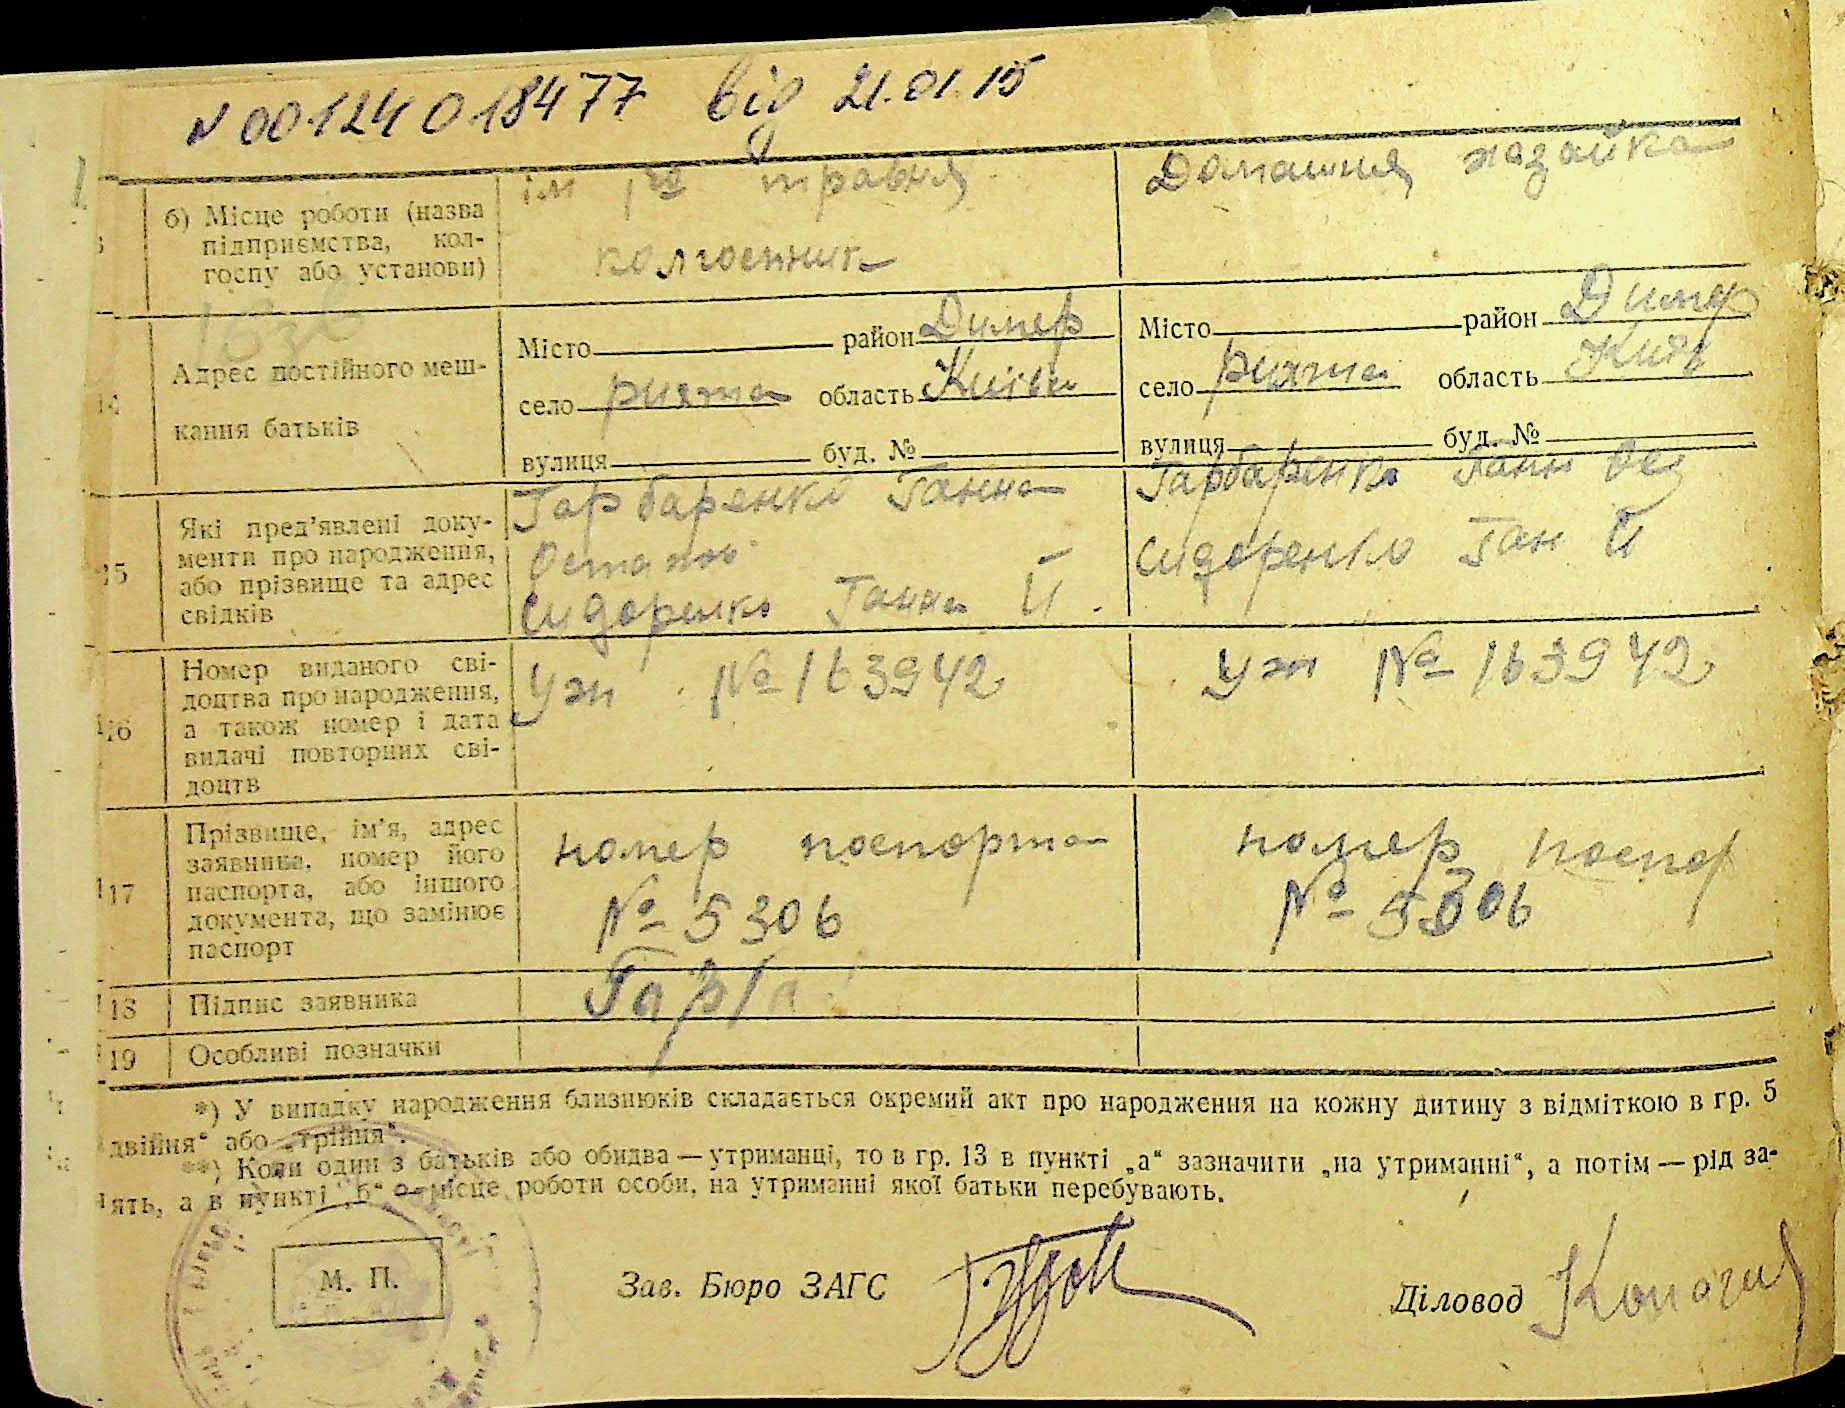 N 00124018477 від 21.01.15
б) Місце роботи (назва
підприємства, кол-
госпу або установи)
ім 1го травня
колгоспник
Домашня хазяйка
14
Адрес постійного меш-
кання батьків
Місто район Димер
село Рихта область Київ
вулиця буд. №
Місто район Димер
село Рихта область Київ
вулиця буд. №
15
Які пред’явлені доку-
менти про народження,
або прізвище та адрес
свідків
Гарбаренко Ганна
Остап
Сидоренко Ганна Й.
Гарбаренко Ганн
Сидоренко Ган Й
16
Номер виданого сві-
доцтва про народження,
а також номер і дата
видачі повторних сві-
доцтв
Уж № 163942
Уж № 163942
17
Прізвище, ім’я, адрес
заявника, номер його
паспорта, або іншого
документа, що замінює
паспорт
номер паспорта
№ 5306
номер паспор
№ 5306
18
Підпис заявника
19
Особливі позначки
*) У випадку народження близнюків складається окремий акт про народження на кожну дитину з відміткою в гр. 5
двійня“ або „трійня“.
**) Коли один з батьків або обидва — утриманці, то в гр. 13 в пункті „а“ зазначити „на утриманні“, а потім — рід за-
нять, а в пункті „б“ — місце роботи особи, на утриманні якої батьки перебувають.
М. П.
Зав. Бюро ЗАГС
Діловод